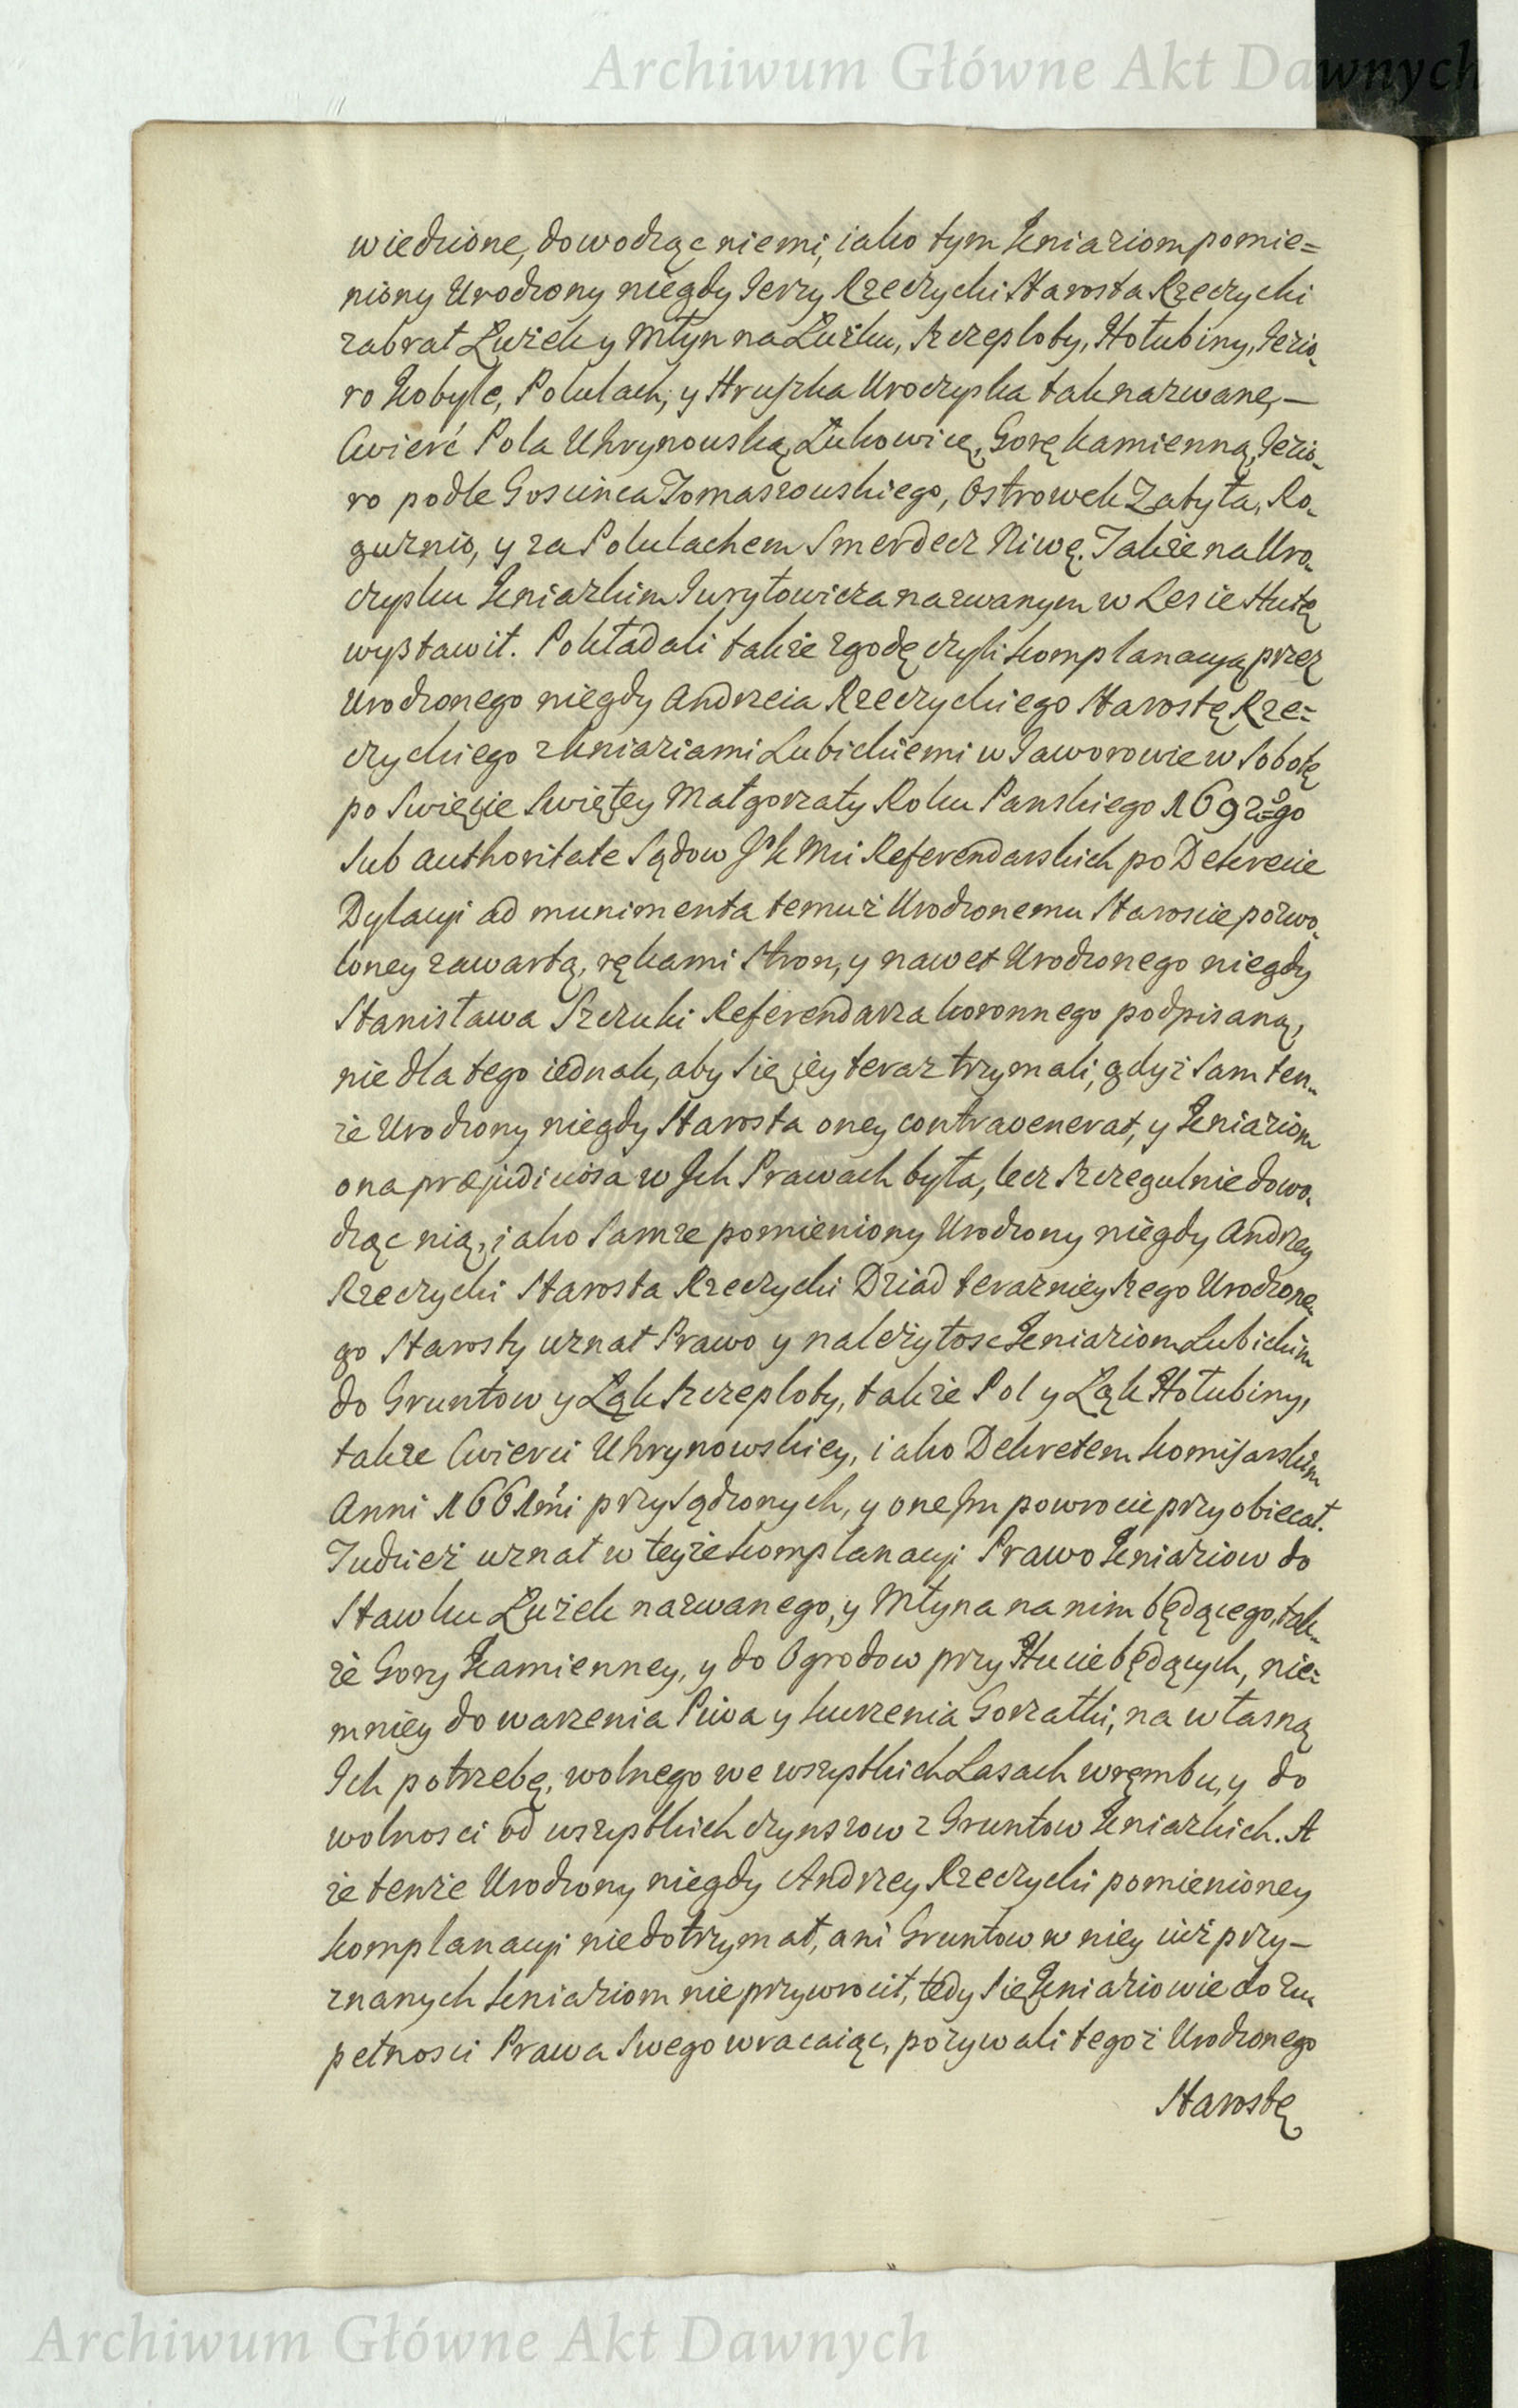 Archiwum Główne Akt Dawnych
wiedzione, dowodząc niemi, iako tym Kniaziom pomie=
niony Urodzony niegdy Jerzy Rzeczycki Starosta Rzeczycki
zabrał Łużek y Młyn na Łużku, Szczepłoby, Hołubiny, Jezio-
ro Kobyle, Polulach, y Hruszka Uroczyska tak nazwane, —
Cwierć Pola Uhrynouską, Łukowicę, Gorę kamienną, Jezio-
ro podle Goscinca Tomaszouskiego, Ostrowek Zabyła, Ro-
guznio, y za Polulachem Smerdecz Niwę. Takze na Uro-
czysku Kniazkim Juryłowicza nazwanym w Lesie Hutę
wystawił. Pokładali takze zgodę czyli komplanacyą przez
Urodzonego niegdy Andrzeia Rzeczyckiego Starostę Rze=
czyckiego z kniaziami Lubickiemi w Jaworowie w Sobotę
po Swięcie Swiętey Małgorzaty Roku Panskiego 1692=go
Sub authoritate Sądow JK Mci Referendarskich po Dekrecie
Dylacyi ad munimenta temuż Urodzonemu Staroscie pozwo-
loney zawartą, rękami Stron, y nawet Urodzonego niegdy
Stanisława Szczuki Referendarza koronnego podpisaną,
nie dla tego iednak, aby się iey teraz trzymali, gdyż Sam ten-
że Urodzony niegdy Starosta oney contravenerat, y Kniaziom
ona præjudiciosa w Ich Prawach była, lecz szczegulnie dowo-
dząc nią, iako Samze pomieniony Urodzony niegdy Andrzey
Rzeczycki Starosta Rzeczycki Dziad teraznieyszego Urodzone-
go Starosty uznał Prawo y należytosc Kniaziom Lubickim
do Gruntow y Łąk Szczepłoby, także Pol y Łąk Hołubiny,
takze Cwierci Uhrynowskiey, iako Dekretem komisarskim
Anni 1661mi przysądzonych, y one Im powrocić przyobiecał.
Tudzież uznał w teyże komplanacyi Prawo Kniaziow do
Stawku Łużek nazwanego, y Młyna na nim będącego, tak-
że Gory Kamienney, y do Ogrodow przy Hucie będących, nie=
mniey do warzenia Piwa y kurzenia Gorzałki, na własną
Ich potrzebę, wolnego we wszystkich Lasach wrębu, y do
wolnosci od wszystkich czynszow z Gruntow Kniazkich. A
że tenże Urodzony niegdy Andrzey Rzeczycki pomienioney
komplanacyi niedotrzymał, ani Gruntow w niey iuż przy-
znanych kniaziom nie przywrocił, tedy się Kniaziowie do zu
pełnosci Prawa Swego wracaiąc, pozywali tegoż Urodzonego
Starostę
Archiwum Główne Akt Dawnych